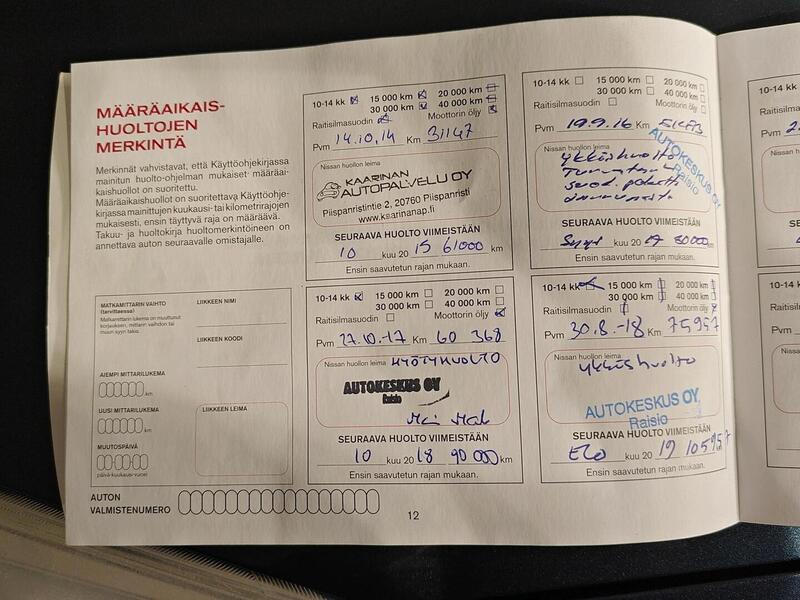 MÄÄRÄAIKAIS-
HUOLTOJEN
MERKINTÄ
Merkinnät vahvistavat, että Käyttöohjekirjassa
mainitun huolto-ohjelman mukaiset määräai-
kaishuollot on suoritettu.
Määräaikaishuollot on suoritettava Käyttöohje-
kirjassa mainittujen kuukausi- tai kilometrirajojen
mukaisesti, ensin täyttyvä raja on määräävä.
Takuu- ja huoltokirja huoltomerkintöineen on
annettava auton seuraavalle omistajalle.
MATKAMITTARIN VAIHTO
(tarvittaessa)
Matkamittarin lukema on muuttunut
korjauksen, mittarin vaihdon tai
muun syyn takia.
AIEMPI MITTARILUKEMA
km
UUSI MITTARILUKEMA
km
MUUTOSPÄIVÄ
päivä-kuukausi-vuosi
LIIKKEEN NIMI
LIIKKEEN KOODI
LIIKKEEN LEIMA
AUTON
VALMISTENUMERO
10-14 kk 15 000 km 20 000 km
30 000 km 40 000 km
Raitisilmasuodin Moottorin öljy
Pvm 14.10.14 Km 31147
Nissan huollon leima
KAARINAN
AUTOPALVELU OY
Piispanristintie 2, 20760 Piispanristi
www.kaarinanap.fi
SEURAAVA HUOLTO VIIMEISTÄÄN
10 kuu 20 15 61000 km
Ensin saavutetun rajan mukaan.
10-14 kk 15 000 km 20 000 km
30 000 km 40 000 km
Raitisilmasuodin Moottorin öljy
Pvm 27.10.-17 Km 60 368
Nissan huollon leima HYÖTYHUOLTO
AUTOKESKUS OY
Raisio
SEURAAVA HUOLTO VIIMEISTÄÄN
10 kuu 20 18 90 000 km
Ensin saavutetun rajan mukaan.
10-14 kk 15 000 km 20 000 km
30 000 km 40 000 km
Raitisilmasuodin Moottorin öljy
Pvm 19.9.16 Km
Nissan huollon leima
ykköshuolto
AUTOKESKUS OY
Raisio
SEURAAVA HUOLTO VIIMEISTÄÄN
Syys kuu 20 17 80000 km
Ensin saavutetun rajan mukaan.
10-14 kk 15 000 km 20 000 km
30 000 km 40 000 km
Raitisilmasuodin Moottorin öljy
Pvm 30.8.-18 Km 75957
Nissan huollon leima
ykköshuolto
AUTOKESKUS OY
Raisio
SEURAAVA HUOLTO VIIMEISTÄÄN
Elo kuu 20 19 105957 km
Ensin saavutetun rajan mukaan.
12
10-14 kk
Raitisilm
Pvm
Nissan
10-14 kk
Raitisilm
Pvm
Nissan